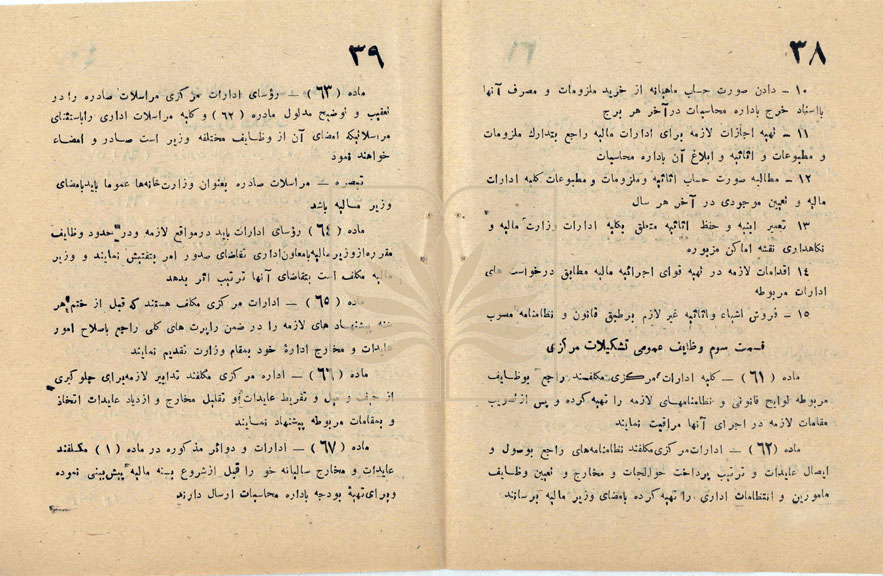 ۳۸
۱۰ - دادن صورت حساب ماهیانه از خرید ملزومات و مصرف آنها
بااسناد خرج باداره محاسبات در آخر هر برج
۱۱ - تهیه اجازات لازمه برای ادارات مالیه راجع بتدارك ملزومات
و مطبوعات و اثاثیه و ابلاغ آن باداره محاسبات
۱۲ - مطالبه صورت حساب اثاثیه و ملزومات و مطبوعات کلیه ادارات
مالیه و تعیین موجودی در آخر هر سال
۱۳ تعمیر ابنیه و حفظ اثاثیه متعلق بکلیه ادارات وزارت مالیه و
نگاهداری نقشه اماکن مزبوره
۱۴ اقدامات لازمه در تهیه قوای اجرائیه مالیه مطابق درخواست های
ادارات مربوطه
۱۵ - فروش اشیاء واثاثیه غیر لازم برطبق قانون و نظامنامه مسوب
قسمت سوم وظایف عمومی تشکیلات مرکزی
ماده (۶۱) - کلیه ادارات مرکزی مکلفند راجع بوظایف
مربوطه لوایح قانونی و نظامنامهای لازمه را تهیه کرده و پس از تصویب
مقامات لازمه در اجرای آنها مراقبت نمایند
ماده (۶۲) - ادارات مرکزی مکلفند نظامنامه‌های راجع بوصول و
ایصال عایدات و ترتیب پرداخت حوالجات و مخارج و تعیین وظایف
مامورین و انتظامات اداری را تهیه کرده بامضای وزیر مالیه برسانند
۳۹
ماده (۶۳) - رؤسای ادارات مرکزی مراسلات صادره را در
تعقیب و توضیح مدلول مادره (۶۲) و کلیه مراسلات اداری راباستثنای
مراسلاتیکه امضای آن از وظایف مختلفه وزیر است صادر و امضاء
خواهند نمود
تبصره - مراسلات صادره بعنوان وزارت‌خانه‌ها عموما بایدبامضای
وزیر مالیه باشد
ماده (۶۴) رؤسای ادارات باید درمواقع لازمه ودر حدود وظایف
مقرره ازوزیر مالیه یامعاون اداری تقاضای صدور امر بتفتیش نمایند و وزیر
مالیه مکلف است بتقاضای آنها ترتیب اثر بدهد
ماده (۶۵) - ادارات مرکزی مکلف هستند که قبل از ختم هر
سنه پیشنهاد های لازمه را در ضمن راپرت های کلی راجع باصلاح امور
عایدات و مخارج ادارهٔ خود بمقام وزارت تقدیم نمایند
ماده (۶۶) - اداره مرکزی مکلفند تدابیر لازمه‌برای جلوگیری
از حیف و میل و تفریط عایدات و تقلیل مخارج و ازدیاد عایدات اتخاذ
و بمقامات مربوطه پیشنهاد نمایند
ماده (۶۷) - ادارات و دوائر مذکوره در ماده (۱) مکلفند
عایدات و مخارج سالیانه خو را قبل ازشروع بسنه مالیه پیش‌بینی نموده
وبرای تهیهٔ بودجه باداره محاسبات ارسال دارند